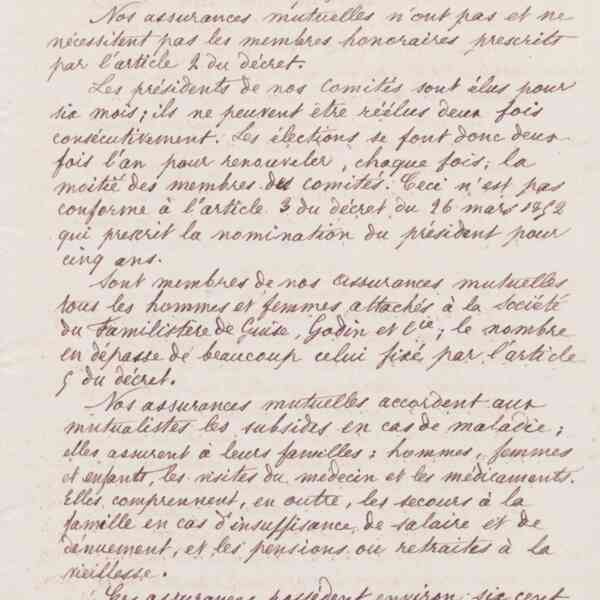 Nos assurances mutuelles n'ont pas et ne
nécessitent pas les membres honoraires prescrits
par l'article 2 du décret.
Les présidents de nos comités sont élus pour
six mois; ils ne peuvent être réélus deux fois
consécutivement. Les élections se font donc deux
fois l'an pour renouveler, chaque fois, la
moitié des membres du comités. Ceci n'est pas
conforme à l'article 3 du décret du 26 mars 1852
qui prescrit la nomination du président pour
cinq ans.
Sont membres de nos assurances mutuelles
tous les hommes et femmes attachés à la Société
du Familistère de Guise, Godin et Cie; le nombre
en dépasse de beaucoup celui fixé par l'article
5 du décret.
Nos assurances mutuelles accordent aux
mutualistes les subsides en cas de maladie;
elles assurent à leurs familles: hommes, femmes
et enfants, les visites du médecin et les médicaments.
Elles comprennent, en outre, les secours à la
famille en cas d'insuffisance de salaire et de
dénuement, et les pensions ou retraites à la
vieillesse.
Ces assurances possèdent environ six cent